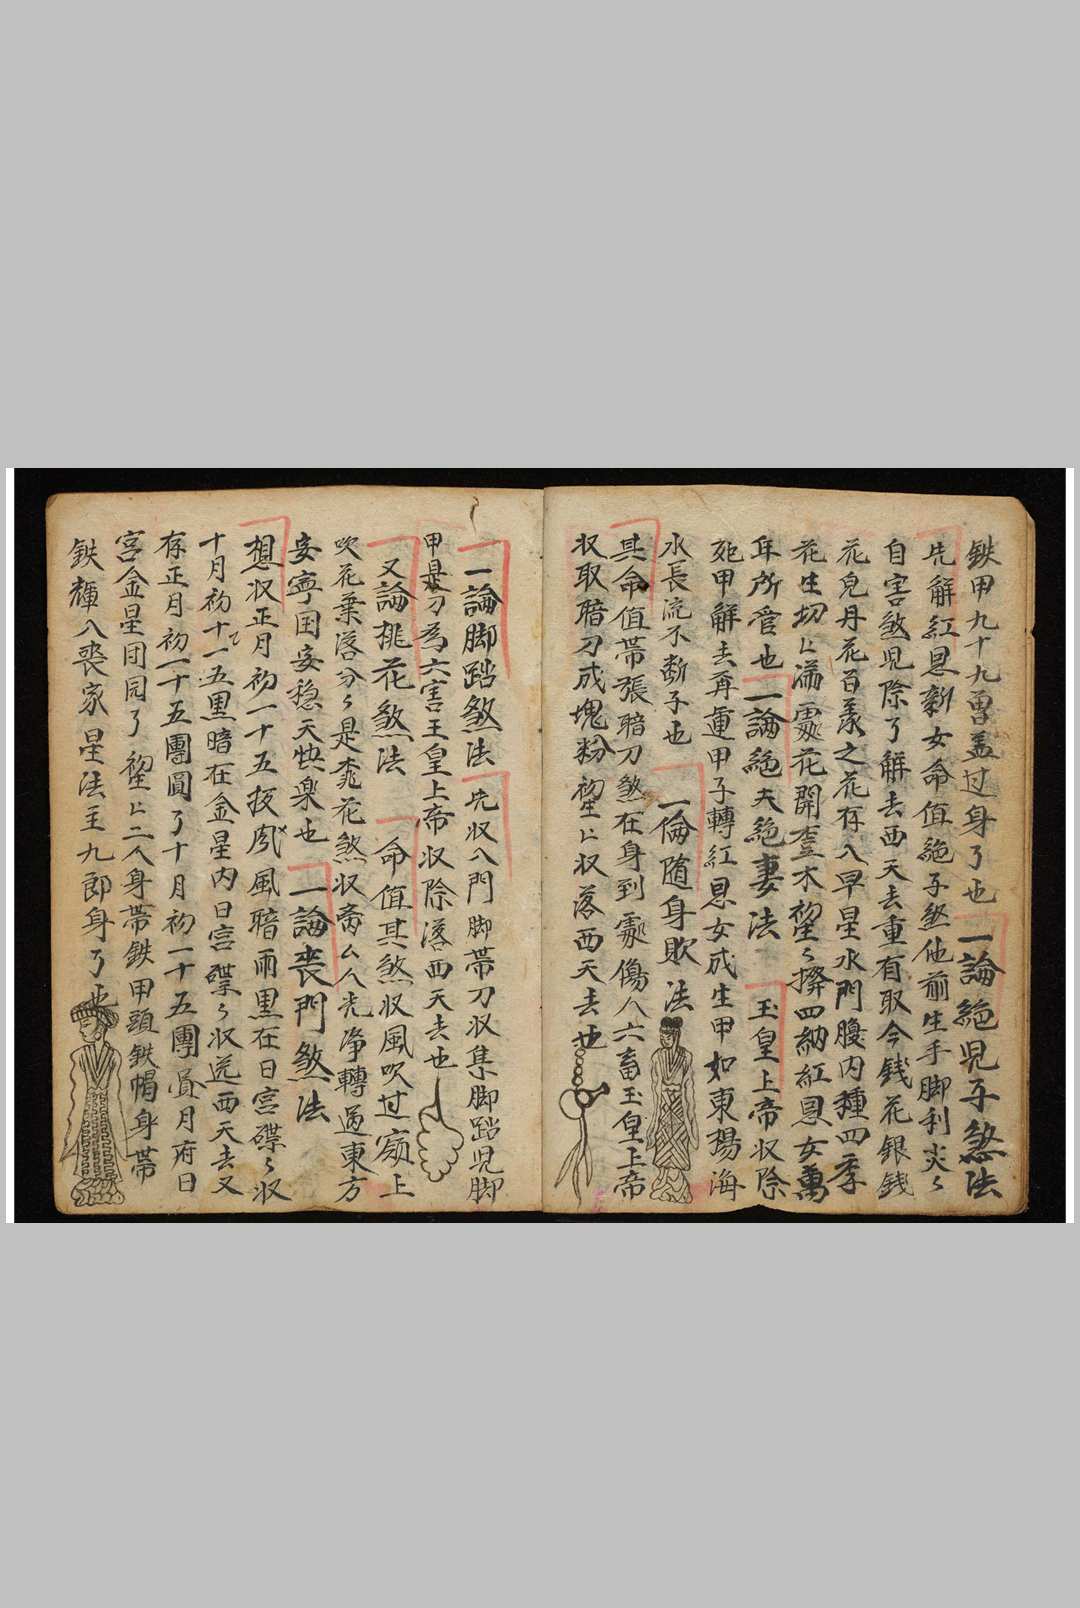 鉄甲九十九曽盖过身了也 一論絶児子煞法
先解紅恩新女命值絶子煞他前生手脚利尖々
自害煞児除了解去西天去重有取今錢花銀銭
花児丹花百羕之花存八早星水門腹内種四季
花生切上滿處花開 木 々擠四納紅恩女萬
年所管也 一論絶夫絶妻法 玉皇上帝収除
死甲解去再運甲子轉紅恩女成生甲如東楊海
水長流不断子也 一倫随身欺法
其命值帯張暗刀煞在身到處傷人六畜玉皇上帝
収取暗刀成塊粉 上収落西天去也
一論脚踏煞法 先収八門脚帯刀収集脚踏児脚
甲是刀為六害王皇上帝収除落西天去也
又論桃花煞法 命值其煞収風吹过嶺上
吹花葉落分々是桃花煞収斋么人光净轉過東方
安寧国安穏天快楽也 一論喪門煞法
想収正月初一十五夜 風暗雨黒在日宮碟々収
十月初十一五黒暗在金星内日宮碟々収送西天去又
存正月初一十五團圓了十月初一十五團員月府日
宮金星団园了 上二人身帯鉄甲頭鉄帽身帯
鉄輝八喪家星法主九郎身了也